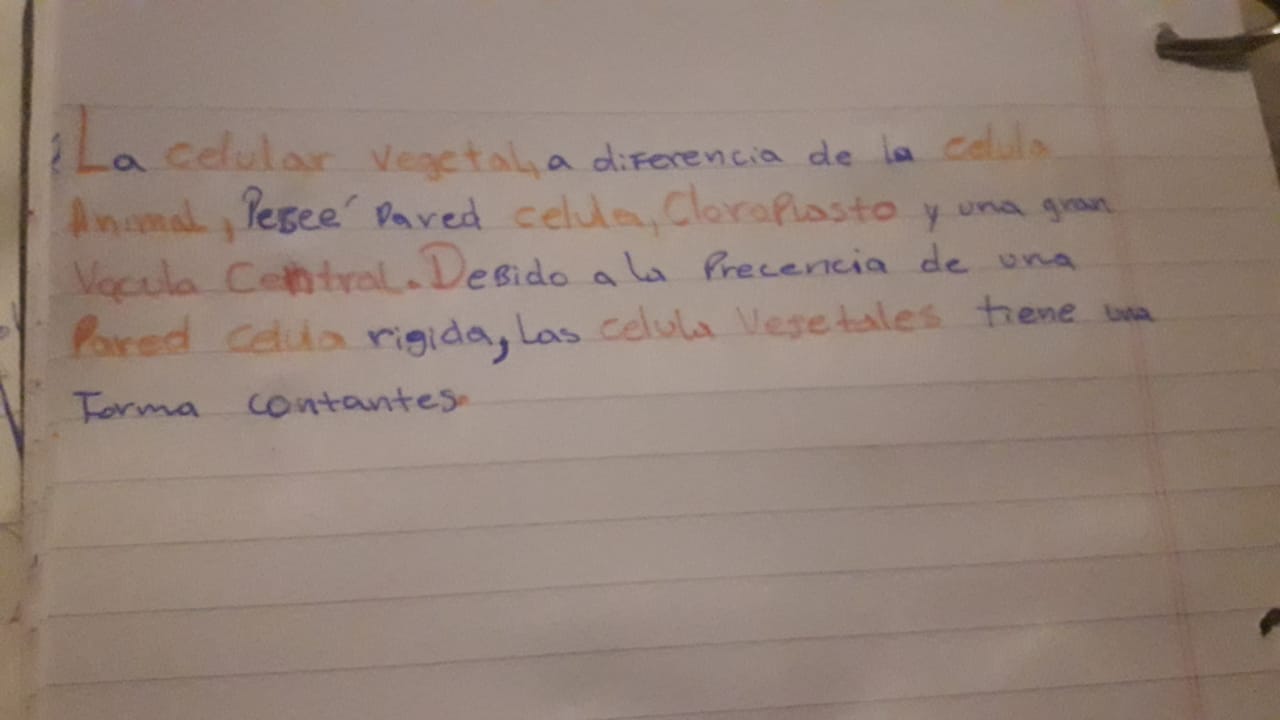 La celular vegetal, a diferencia de la celula
Animal, Pesee Pared celula, Cloroplasto y una gran
Vacula Central. Debido a la Precencia de una
Pared celula rigida, las celula Vegetales tiene una
Forma contantes.